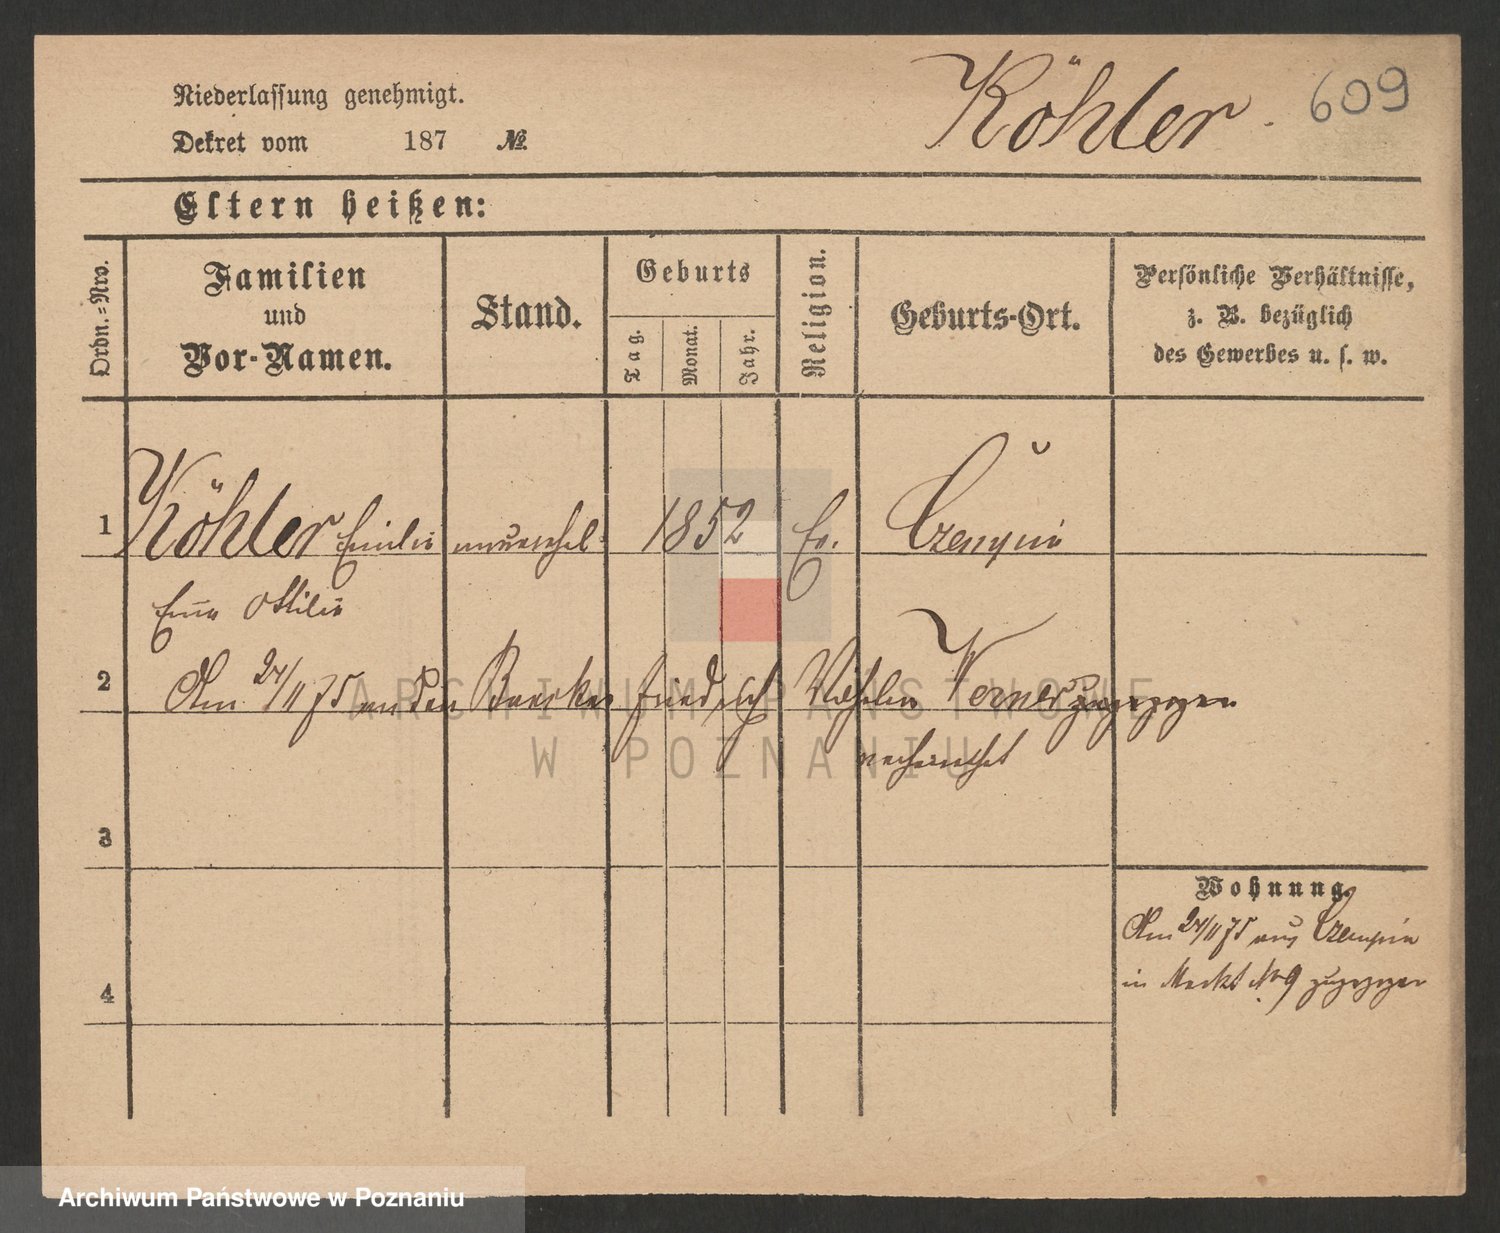 Niederlassung genehmigt.
Dekret vom 187 №
Köhler. 609
Eltern heißen:
Ordn.=Nro.
Familien
und
Vor-Namen.
Stand.
Geburts
Tag.
Monat.
Jahr.
Religion.
Geburts-Ort.
Persönliche Verhältnisse,
z. B. bezüglich
des Gewerbes u. s. w.
1 Köhler Emilie unverehel 1852 Ev. Czempin
Ottilie
2 Am 24/11 75 an den Friedrich Wilhelm Werner zugezogen
verheirathet
3
Wohnung.
Am 24/11 75 aus Czempin
in Markt No 9 zugezogen
4
ARCHIWUM PAŃSTWOWE
W POZNANIU
Archiwum Państwowe w Poznaniu